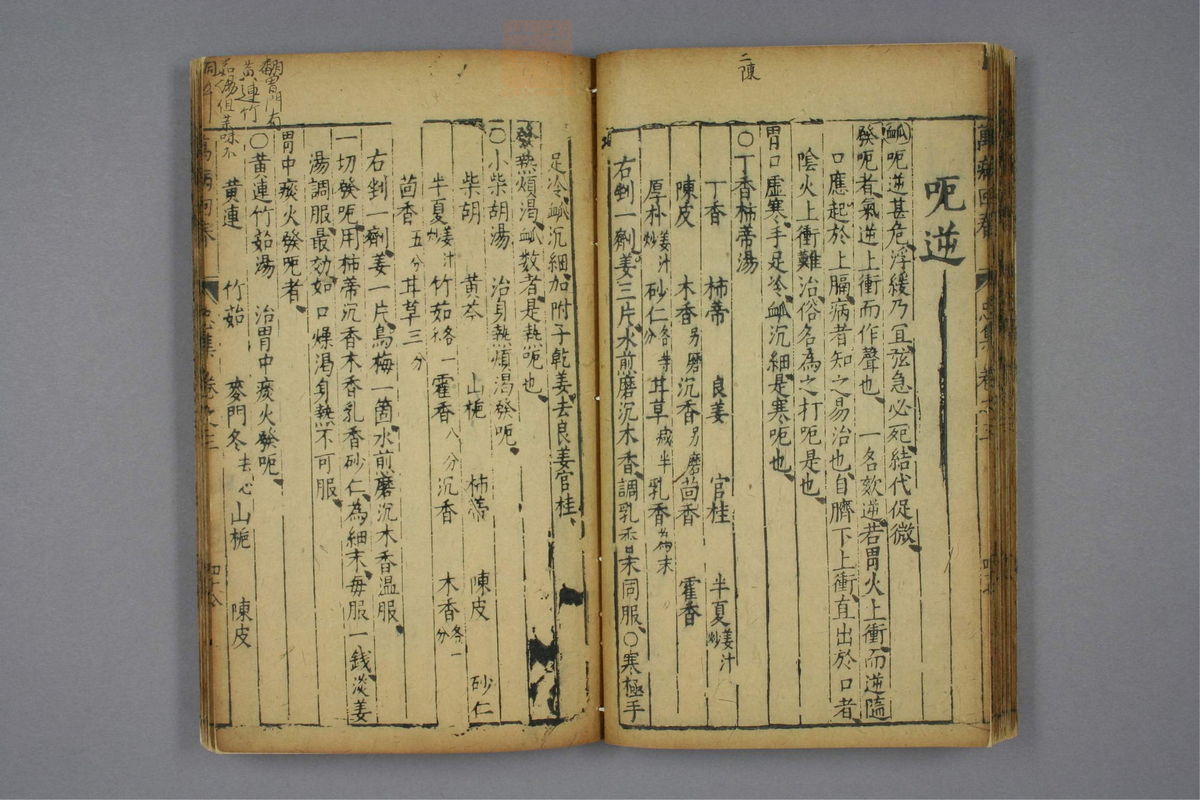 二陳
呃逆
脉呃逆甚危浮緩乃宜弦急必死結代促微
發呃者氣逆上衝而作聲也一名欬逆若胃火上衝而逆隨
口應起於上膈病者知之易治也自臍下上衝直出於口者
陰火上衝難治俗名為之打呃是也
胃口虛寒手足冷脉沉細是寒呃也
○丁香柿蒂湯
丁香 柿蒂 良姜 官桂 半夏姜汁炒
陳皮 木香另磨 沉香另磨 茴香 霍香
厚朴姜汁炒 砂仁各等分 甘草減半 乳香為細末
右剉一劑姜三片水煎磨沉木香調乳香末同服○寒極手
足冷脉沉細加附子乾姜去良姜官桂
發熱煩渴脉数者是熱呃也
○小柴胡湯 治身熱煩渴發呃
柴胡 黃芩 山梔 柿蒂 陳皮 砂仁
半夏姜汁炒 竹茹各一 霍香八分 沉香 木香各一分
茴香五分 甘草三分
右剉一劑姜一片烏梅一箇水煎磨沉木香温服
一切發呃用柿蒂沉香木香乳香砂仁為細末每服一錢淡姜
湯調服最効如口燥渴身熱不可服
胃中痰火發呃者
○黃連竹茹湯 治胃中痰火發呃
黃連 竹茹 麥門冬去心 山梔 陳皮
翻胃門有
黃連竹
茹湯但藥味不
同